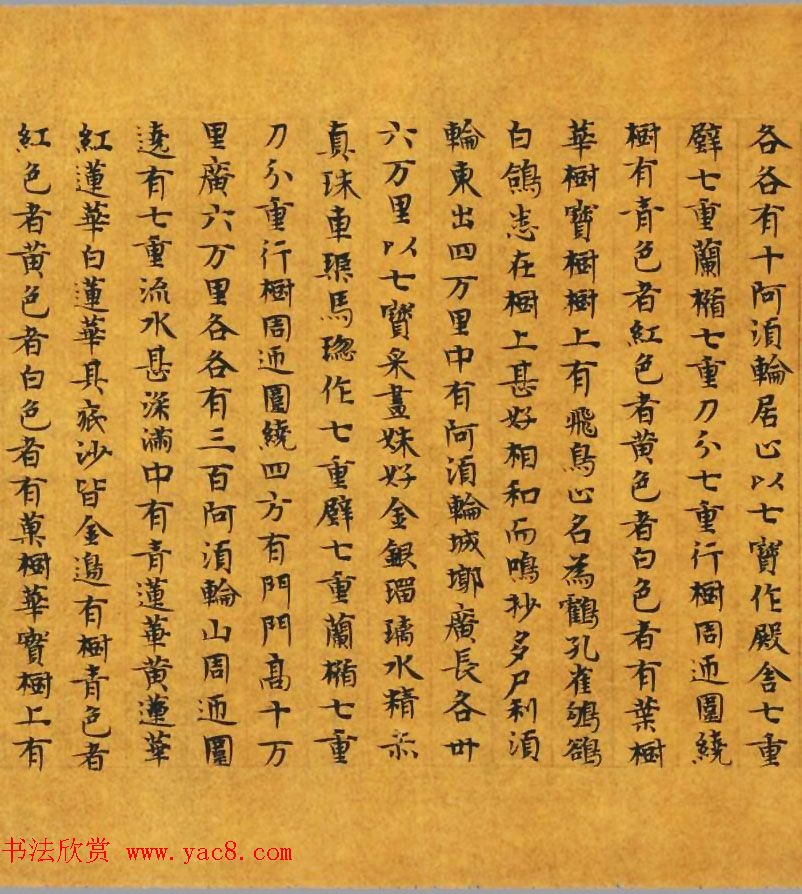 各各有十阿須輪居止以七寶作殿舎七重
壁七重蘭楯七重刀分七重行樹周迊圍繞
樹有青色者紅色者黄色者白色者有葉樹
華樹寶樹樹上有飛鳥止名為鶴孔雀鴝鵒
白鴿悉在樹上甚好相和而鳴抄多尸利須
輪東出四万里中有阿須輪城墎廣長各卅
六万里以七寶采畫姝好金銀瑠璃水精赤
真珠車璖馬瑙作七重壁七重蘭楯七重
刀分重行樹周迊圍繞四方有門門高十万
里廣六万里各各有三百阿須輪山周迊圍
遶有七重流水甚深滿中有青蓮華黄蓮華
紅蓮華白蓮華其底沙皆金邊有樹青色者
紅色者黄色者白色者有菓樹華寶樹上有
书法欣赏 www.yac8.com